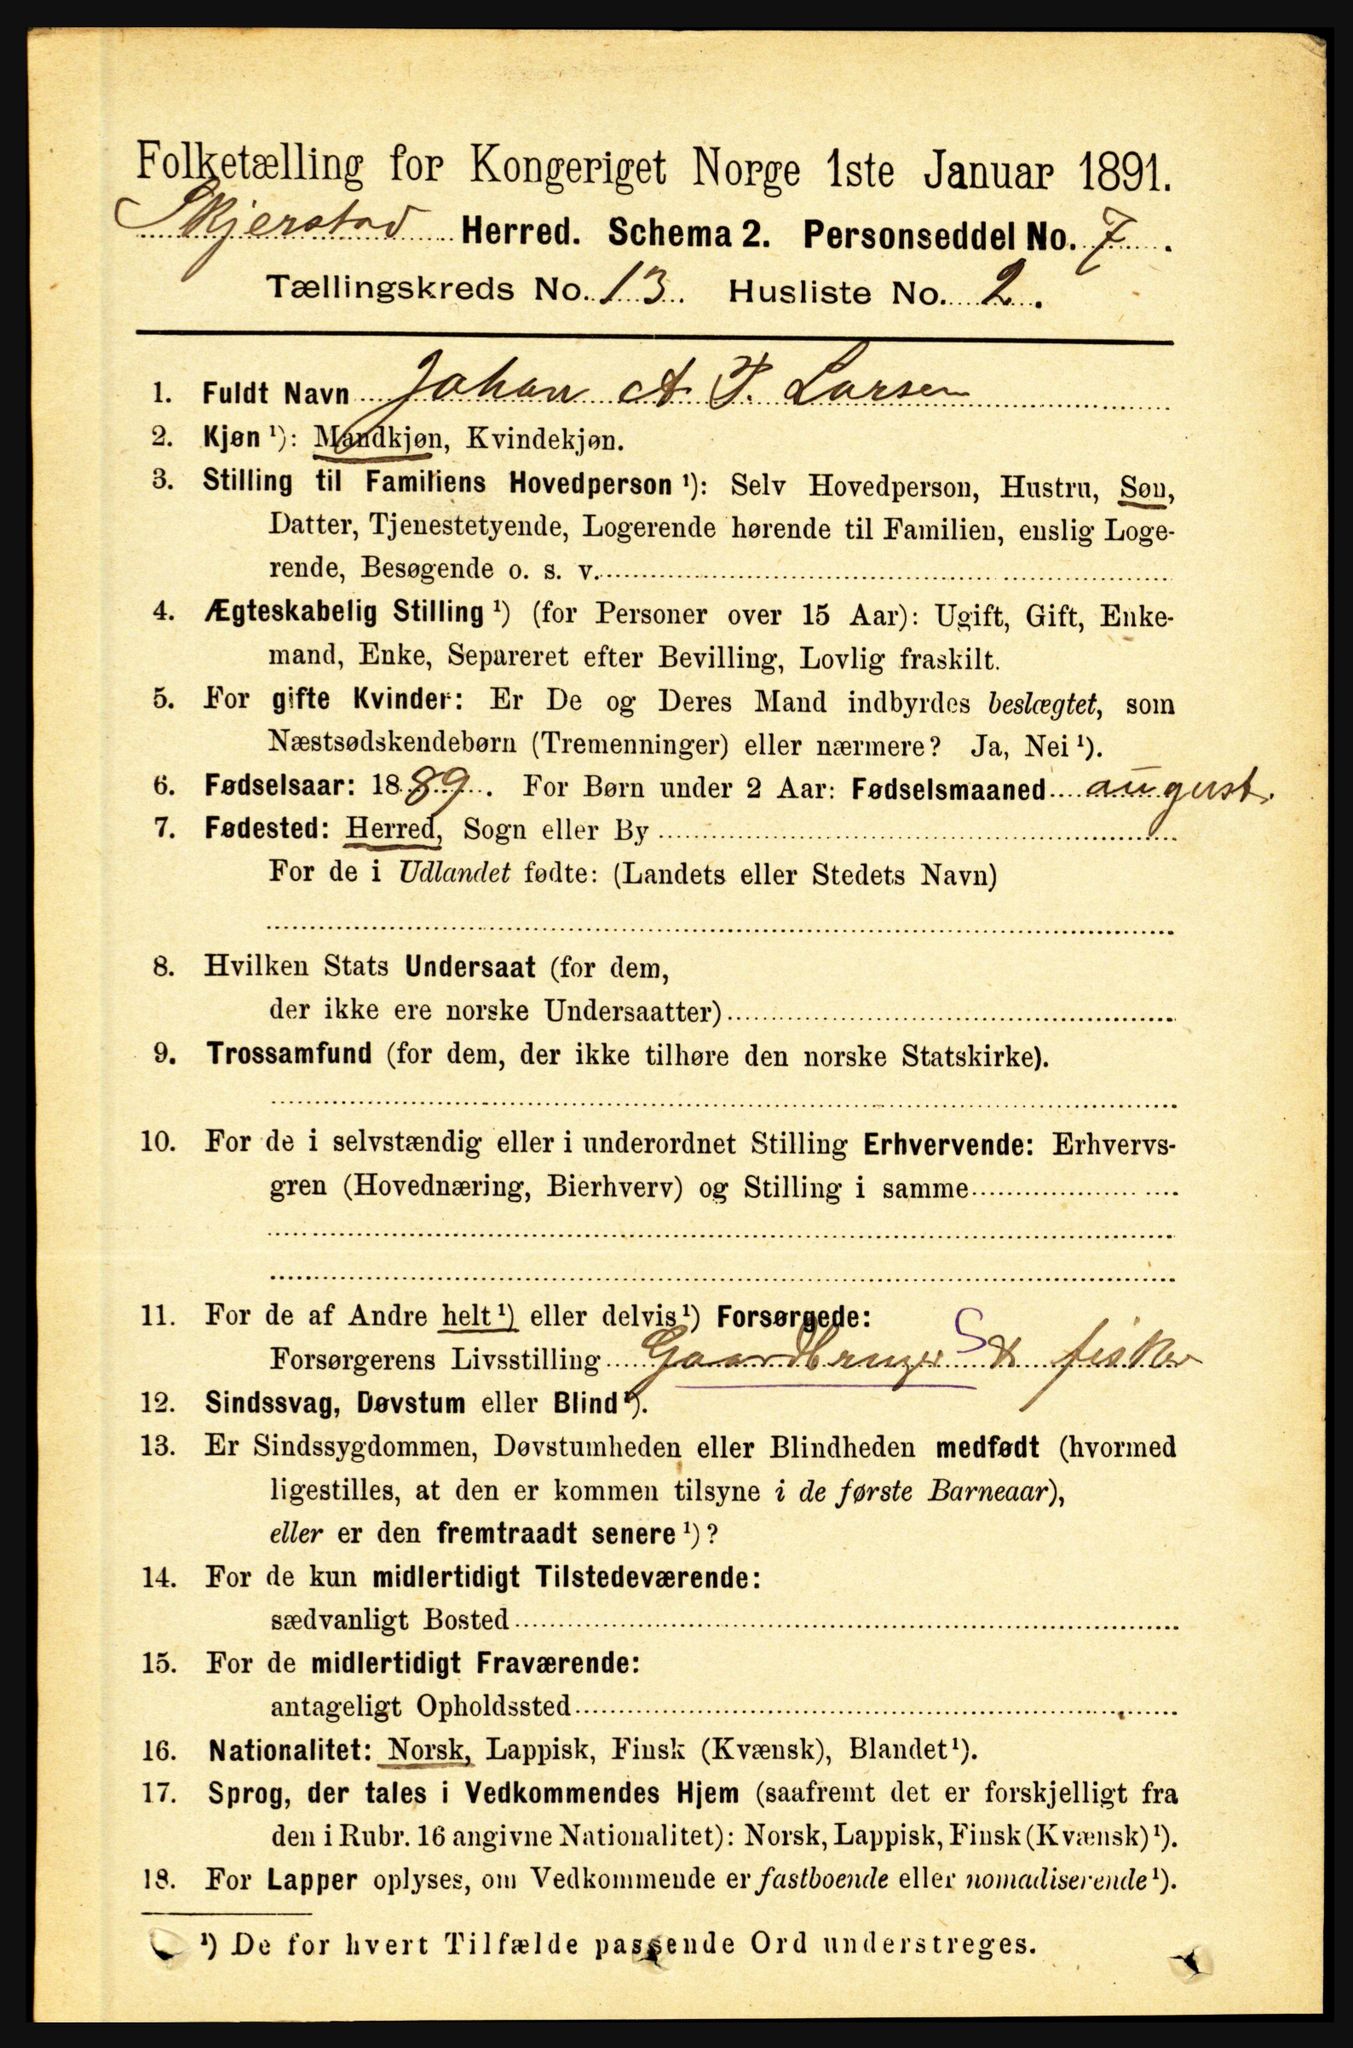 Folketælling for Kongeriget Norge 1ste Januar 1891.
Skjerstad Herred. Schema 2. Personseddel No. 7.
Tællingskreds No. 13. Husliste No. 2.
1. Fuldt Navn Johan A. P. Larsen
2. Kjøn ¹): Mandkjøn, Kvindekjøn.
3. Stilling til Familiens Hovedperson ¹): Selv Hovedperson, Hustru, Søn,
Datter, Tjenestetyende, Logerende hørende til Familien, enslig Loge-
rende, Besøgende o. s. v.
4. Ægteskabelig Stilling ¹) (for Personer over 15 Aar): Ugift, Gift, Enke-
mand, Enke, Separeret efter Bevilling, Lovlig fraskilt.
5. For gifte Kvinder: Er De og Deres Mand indbyrdes beslægtet, som
Næstsødskendebørn (Tremenninger) eller nærmere? Ja, Nei ¹).
6. Fødselsaar: 1889. For Børn under 2 Aar: Fødselsmaaned august.
7. Fødested: Herred, Sogn eller By
For de i Udlandet fødte: (Landets eller Stedets Navn)
8. Hvilken Stats Undersaat (for dem,
der ikke ere norske Undersaatter)
9. Trossamfund (for dem, der ikke tilhøre den norske Statskirke).
10. For de i selvstændig eller i underordnet Stilling Erhvervende: Erhvervs-
gren (Hovednæring, Bierhverv) og Stilling i samme
11. For de af Andre helt ¹) eller delvis ¹) Forsørgede: S
Forsørgerens Livsstilling Gaardbruger & fisker
12. Sindssvag, Døvstum eller Blind ¹).
13. Er Sindssygdommen, Døvstumheden eller Blindheden medfødt (hvormed
ligestilles, at den er kommen tilsyne i de første Barneaar),
eller er den fremtraadt senere ¹)?
14. For de kun midlertidigt Tilstedeværende:
sædvanligt Bosted
15. For de midlertidigt Fraværende:
antageligt Opholdssted
16. Nationalitet: Norsk, Lappisk, Finsk (Kvænsk), Blandet ¹).
17. Sprog, der tales i Vedkommendes Hjem (saafremt det er forskjelligt fra
den i Rubr. 16 angivne Nationalitet): Norsk, Lappisk, Finsk (Kvænsk) ¹).
18. For Lapper oplyses, om Vedkommende er fastboende eller nomadiserende ¹).
¹) De for hvert Tilfælde passende Ord understreges.